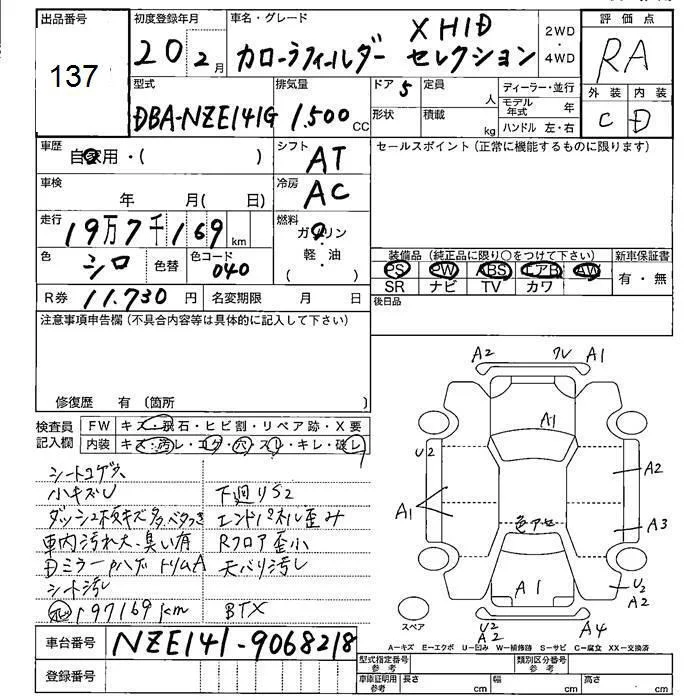 出品番号
137
初度登録年月
20 2月
車名・グレード
カローラフィールダー X HID セレクション
2WD
・
4WD
評価点
RA
外装 内装
C D
型式
DBA-NZE141G
排気量
1.500 CC
ドア 5
定員 人
形状
積載 kg
ディーラー・並行
モデル年式 年
ハンドル 左・右
車歴
自家用・( )
シフト
AT
セールスポイント(正常に機能するものに限ります)
車検
年 月( 日)
冷房
AC
走行
19万7千169 km
燃料
ガソリン
軽・油
( )
色
シロ
色替
色コード
040
装備品(純正品に限り○をつけて下さい)
PS PW ABS エアB AW
SR ナビ TV カワ
新車保証書
有・無
R券 11.730 円
名変期限 月 日
後日品
注意事項申告欄(不具合内容等は具体的に記入して下さい)
修復歴 有 (箇所 )
検査員
記入欄
FW キズ・飛石・ヒビ割・リペア跡・X要
内装 キズ・汚レ・コゲ・穴・スレ・キレ・破レ
シートコゲ穴
小キズU
下廻りS2
ダッシュ板キズ多、ベタつき
エンドパネル歪み
車内汚れ大、臭い有
Rフロア歪小
Dミラー ハゲ トリムA
天バリ汚し
シート汚し
197169km
BTX
車台番号 NZE141-9068218
登録番号
A2
A1
A1
U2
A2
A1
A3
色アセ
A1
U2
A2
スペア
U2
A2
A4
A-キズ E-エクボ U-凹み W-補修跡 S-サビ C-腐食 XX-交換済
型式指定番号
参考
類別区分番号
参考
車庫証明用
参考
長さ cm
幅 cm
高さ cm